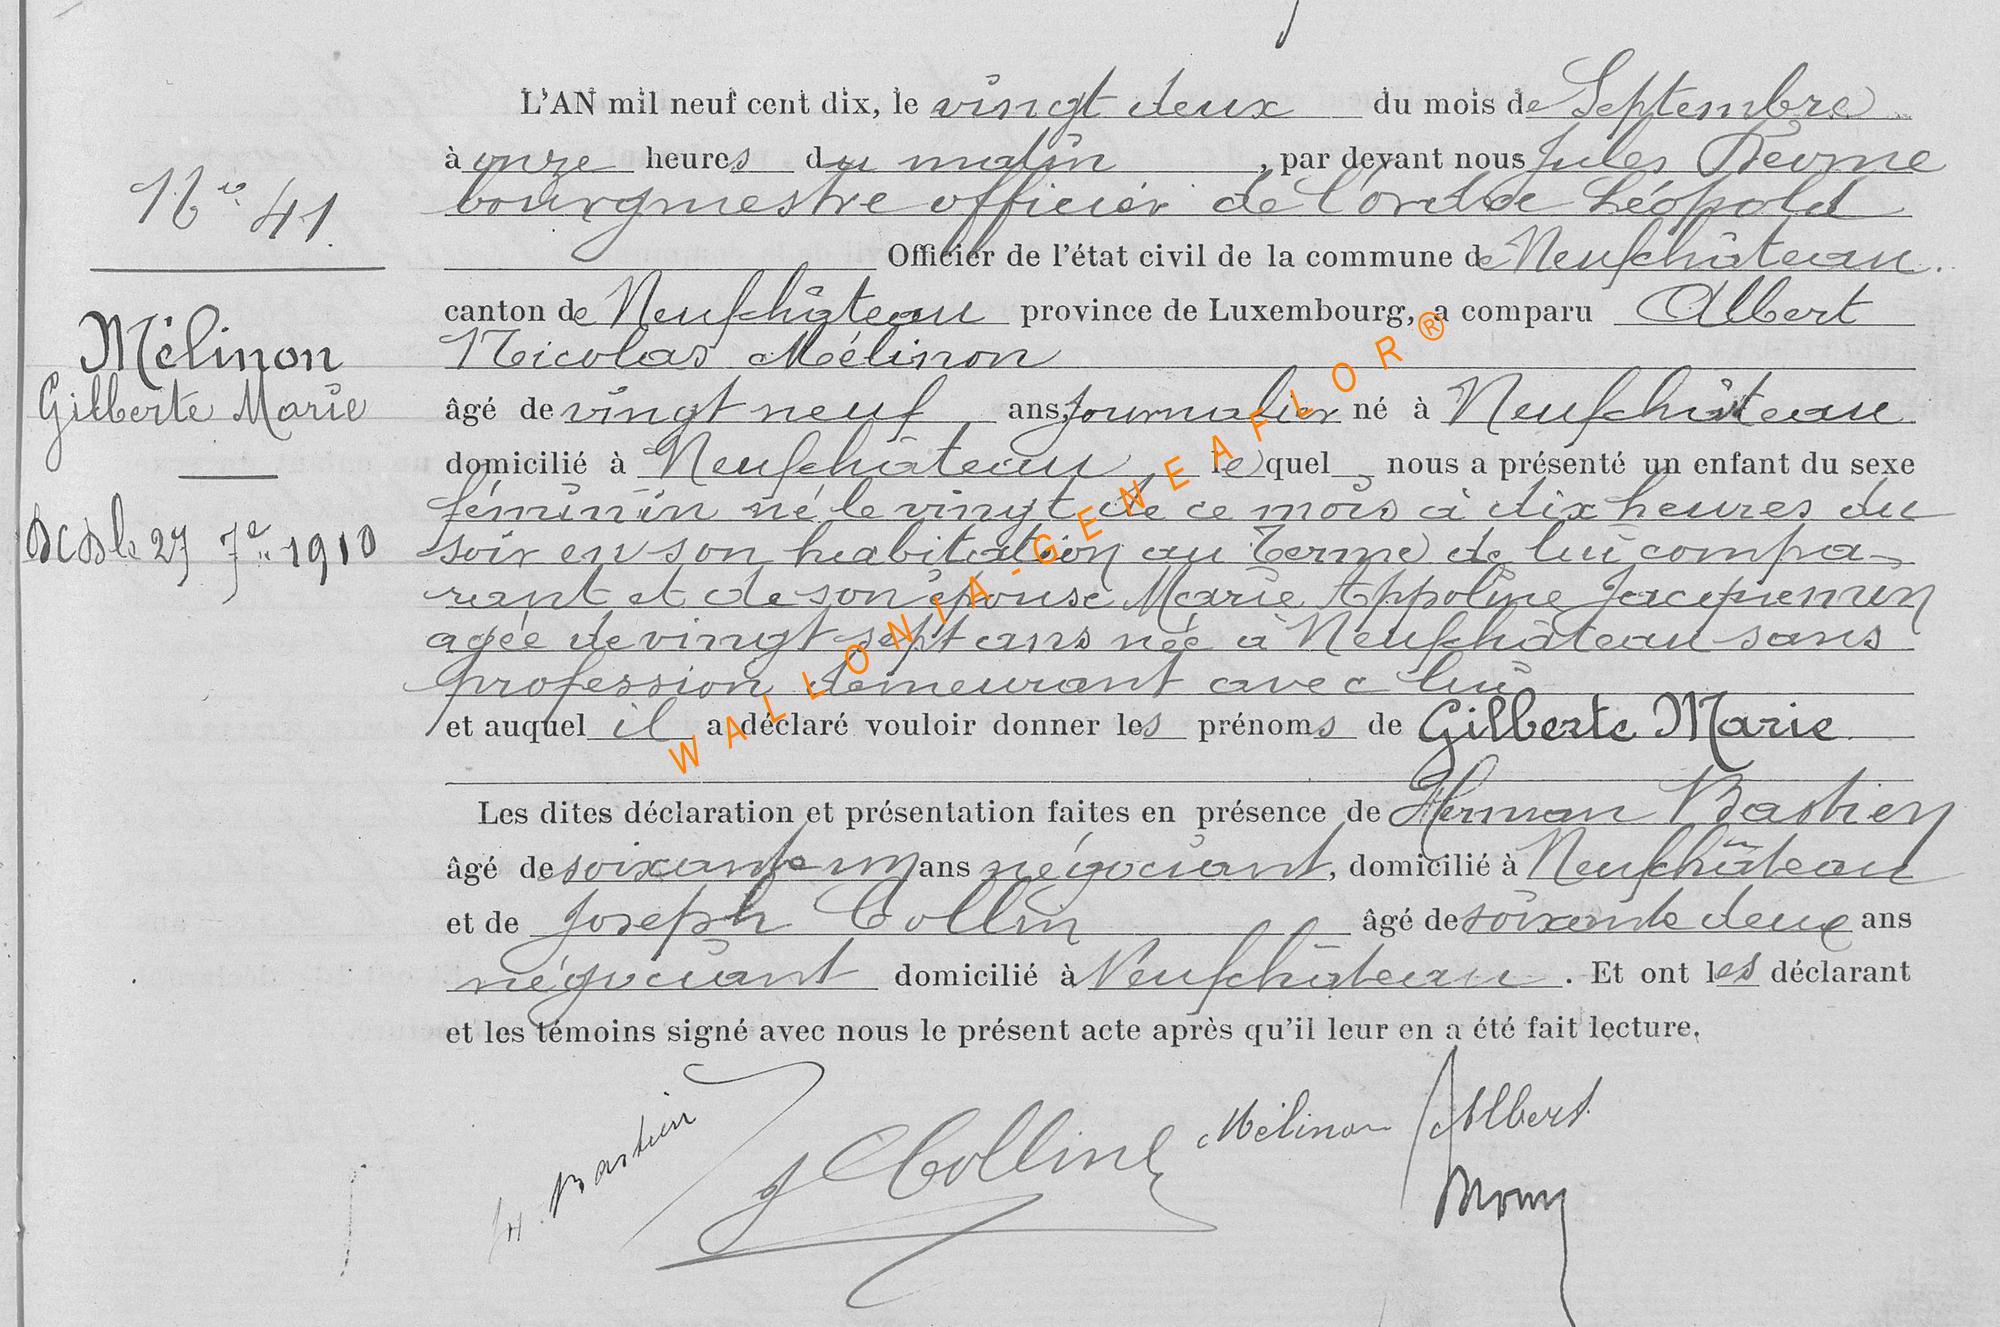 L'AN mil neuf cent dix, le vingt deux du mois de Septembre
à onze heures du matin, par devant nous Jules
bourgmestre officier de l'ordre Léopold
Officier de l'état civil de la commune de Neufchâteau.
canton de Neufchâteau province de Luxembourg, a comparu Albert
Nicolas Mélinon
âgé de vingt neuf ans, journalier né à Neufchâteau
domicilié à Neufchâteau, lequel nous a présenté un enfant du sexe
féminin né le vingt de ce mois à dix heures du
soir en son habitation au Terme de lui compa-
rant et de son épouse Marie Appoline Jacquemin
agée de vingt sept ans née à Neufchâteau sans
profession demeurant avec lui
et auquel il a déclaré vouloir donner les prénoms de Gilberte Marie
Les dites déclaration et présentation faites en présence de Herman Bastien
âgé de soixante un ans négociant, domicilié à Neufchâteau
et de Joseph Collin âgé de soixante deux ans
négociant domicilié à Neufchâteau. Et ont les déclarant
et les témoins signé avec nous le présent acte après qu'il leur en a été fait lecture.
H. Bastien J Collin Mélinon Albert
No 41
Mélinon
Gilberte Marie
le 27 7re 1910
WALLONIA-GENEAFLOR®